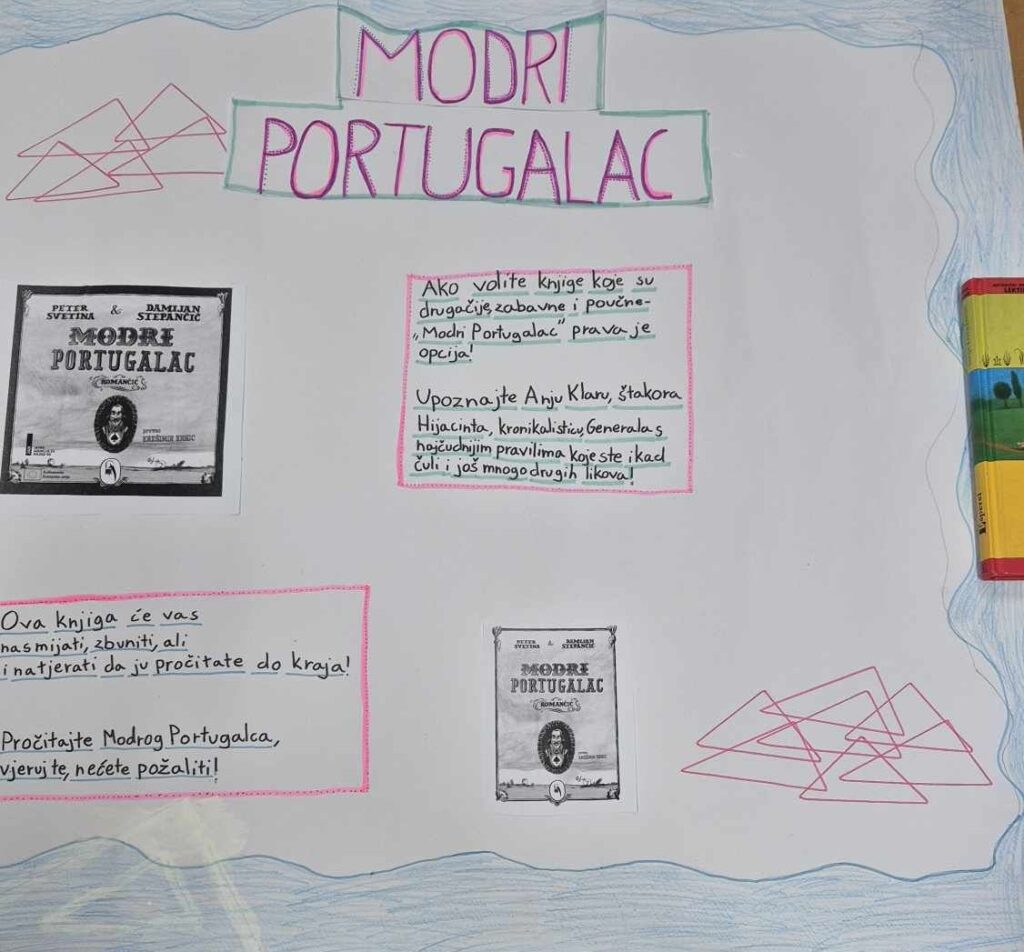 MODRI
PORTUGALAC
PETER SVETINA & DAMIJAN STEPANČIČ
MODRI
PORTUGALAC
ROMANČIĆ
KREŠIMIR KRNIC
Ako volite knjige koje su
drugačije, zabavne i poučne-
„Modri Portugalac" prava je
opcija!
Upoznajte Anju Klaru, štakora
Hijacinta, kronikalisticu, Generala s
najčudnijim pravilima koje ste ikad
čuli i još mnogo drugih likova!
Ova knjiga će vas
nasmijati, zbuniti, ali
i natjerati da ju pročitate do kraja!
Pročitajte Modrog Portugalca,
vjerujte, nećete požaliti!
PETER SVETINA & DAMIJAN STEPANČIČ
MODRI
PORTUGALAC
ROMANČIĆ